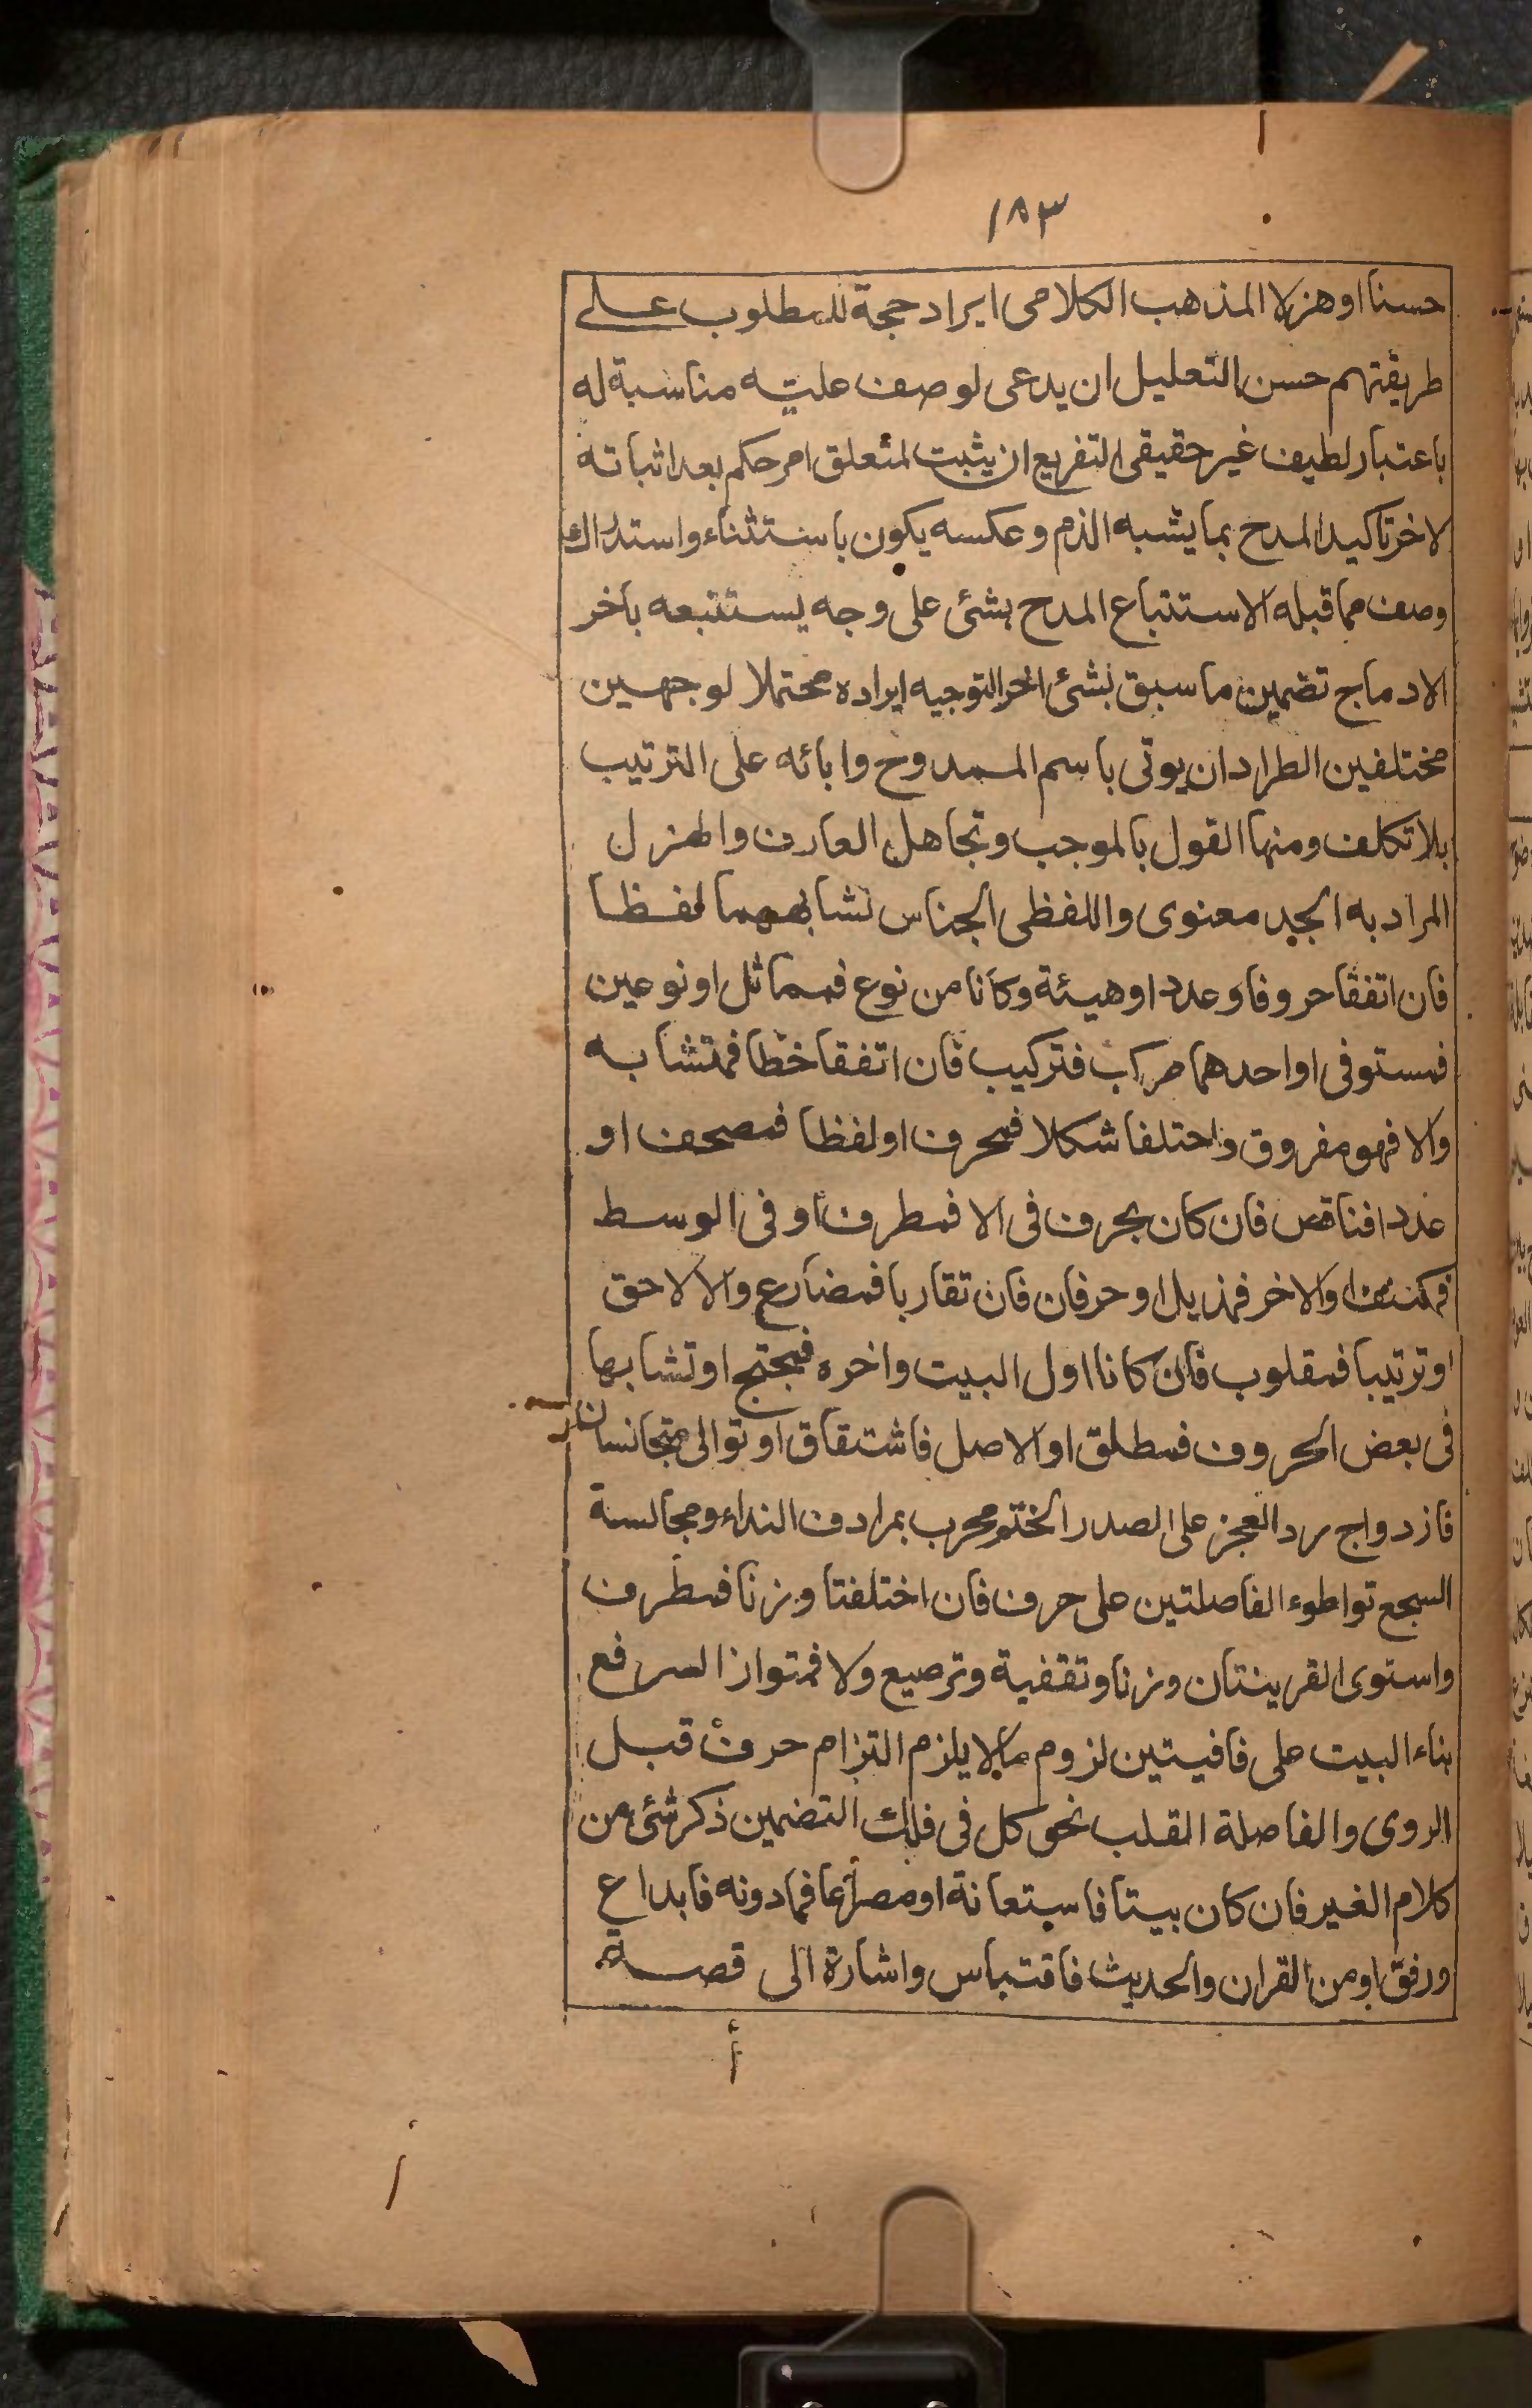 ١٨٣
حسنا او هزلا المذهب الكلامى ايراد حجة للمطلوب على
طريقتهم حسن التعليل ان يدعى لوصف علية مناسبة له
باعتبار لطيف غير حقيقى التفريع ان يثبت لمتعلق امر حكم بعد اثباته
لاخر تاكيد المدح بما يشبه الذم وعكسه يكون باستثناء واستدراك
وصف مما قبله الاستتباع المدح بشئ على وجه يستتبعه باخر
الادماج تضمين ما سبق بشئ اخر التوجيه ايراده محتملا لوجهين
مختلفين الطراد ان يوتى باسم الممدوح وابائه على الترتيب
بلا تكلف ومنها القول بالموجب وتجاهل العارف والهزل
المراد به الجد معنوى واللفظى الجناس تشابههما لفظا
فان اتفقا حروفا وعددا وهيئة وكانا من نوع فمماثل او نوعين
فمستوفى او احدهما مركب فتركيب فان اتفقا خطا فمتشابه
والا فهو مفروق واختلفا شكلا فمحرف او لفظا فمصحف او
عددا فناقص فان كان بحرف فى الا فمطرف او فى الوسط
فمكتنف او الاخر فمذيل او حرفان فان تقاربا فمضارع والا لاحق
او ترتيبا فمقلوب فان كانا اول البيت واخره فمجنح او تشابها
فى بعض الحروف فمطلق او الاصل فاشتقاق او توالى متجانسان
فازدواج رد العجز على الصدر الختم بمرادف النداء ومجالسة
السجع تواطوء الفاصلتين على حرف فان اختلفتا وزنا فمطرف
واستوى القرينتان وزنا وتقفية وترصيع ولا فمتواز السرفع
بناء البيت على قافيتين لزوم مالا يلزم التزام حرف قبل
الروى والفاصلة القلب نحو كل فى فلك التضمين ذكر شئ من
كلام الغير فان كان بيتا فاستعانة او مصراعا فما دونه فابداع
ورفق او من القران والحديث فاقتباس واشارة الى قصة